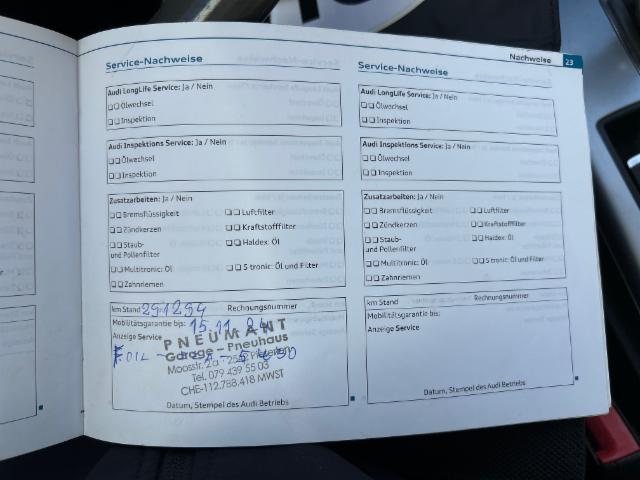 Nachweise 23
Service-Nachweise
Audi LongLife Service: Ja / Nein
Ölwechsel
Inspektion
Audi Inspektions Service: Ja / Nein
Ölwechsel
Inspektion
Zusatzarbeiten: Ja / Nein
Bremsflüssigkeit Luftfilter
Zündkerzen Kraftstofffilter
Staub- Haldex: Öl
und Pollenfilter
Multitronic: Öl S tronic: Öl und Filter
Zahnriemen
km Stand 291294 Rechnungsnummer
Mobilitätsgarantie bis: 15.11.24
Anzeige Service
PNEUMANT
Garage - Pneuhaus
OIL
Moosstr. 2a
Tel. 079 439 55 03
CHE-112.788.418 MWST
Datum, Stempel des Audi Betriebs
Service-Nachweise
Audi LongLife Service: Ja / Nein
Ölwechsel
Inspektion
Audi Inspektions Service: Ja / Nein
Ölwechsel
Inspektion
Zusatzarbeiten: Ja / Nein
Bremsflüssigkeit Luftfilter
Zündkerzen Kraftstofffilter
Staub- Haldex: Öl
und Pollenfilter
Multitronic: Öl S tronic: Öl und Filter
Zahnriemen
km Stand Rechnungsnummer
Mobilitätsgarantie bis:
Anzeige Service
Datum, Stempel des Audi Betriebs